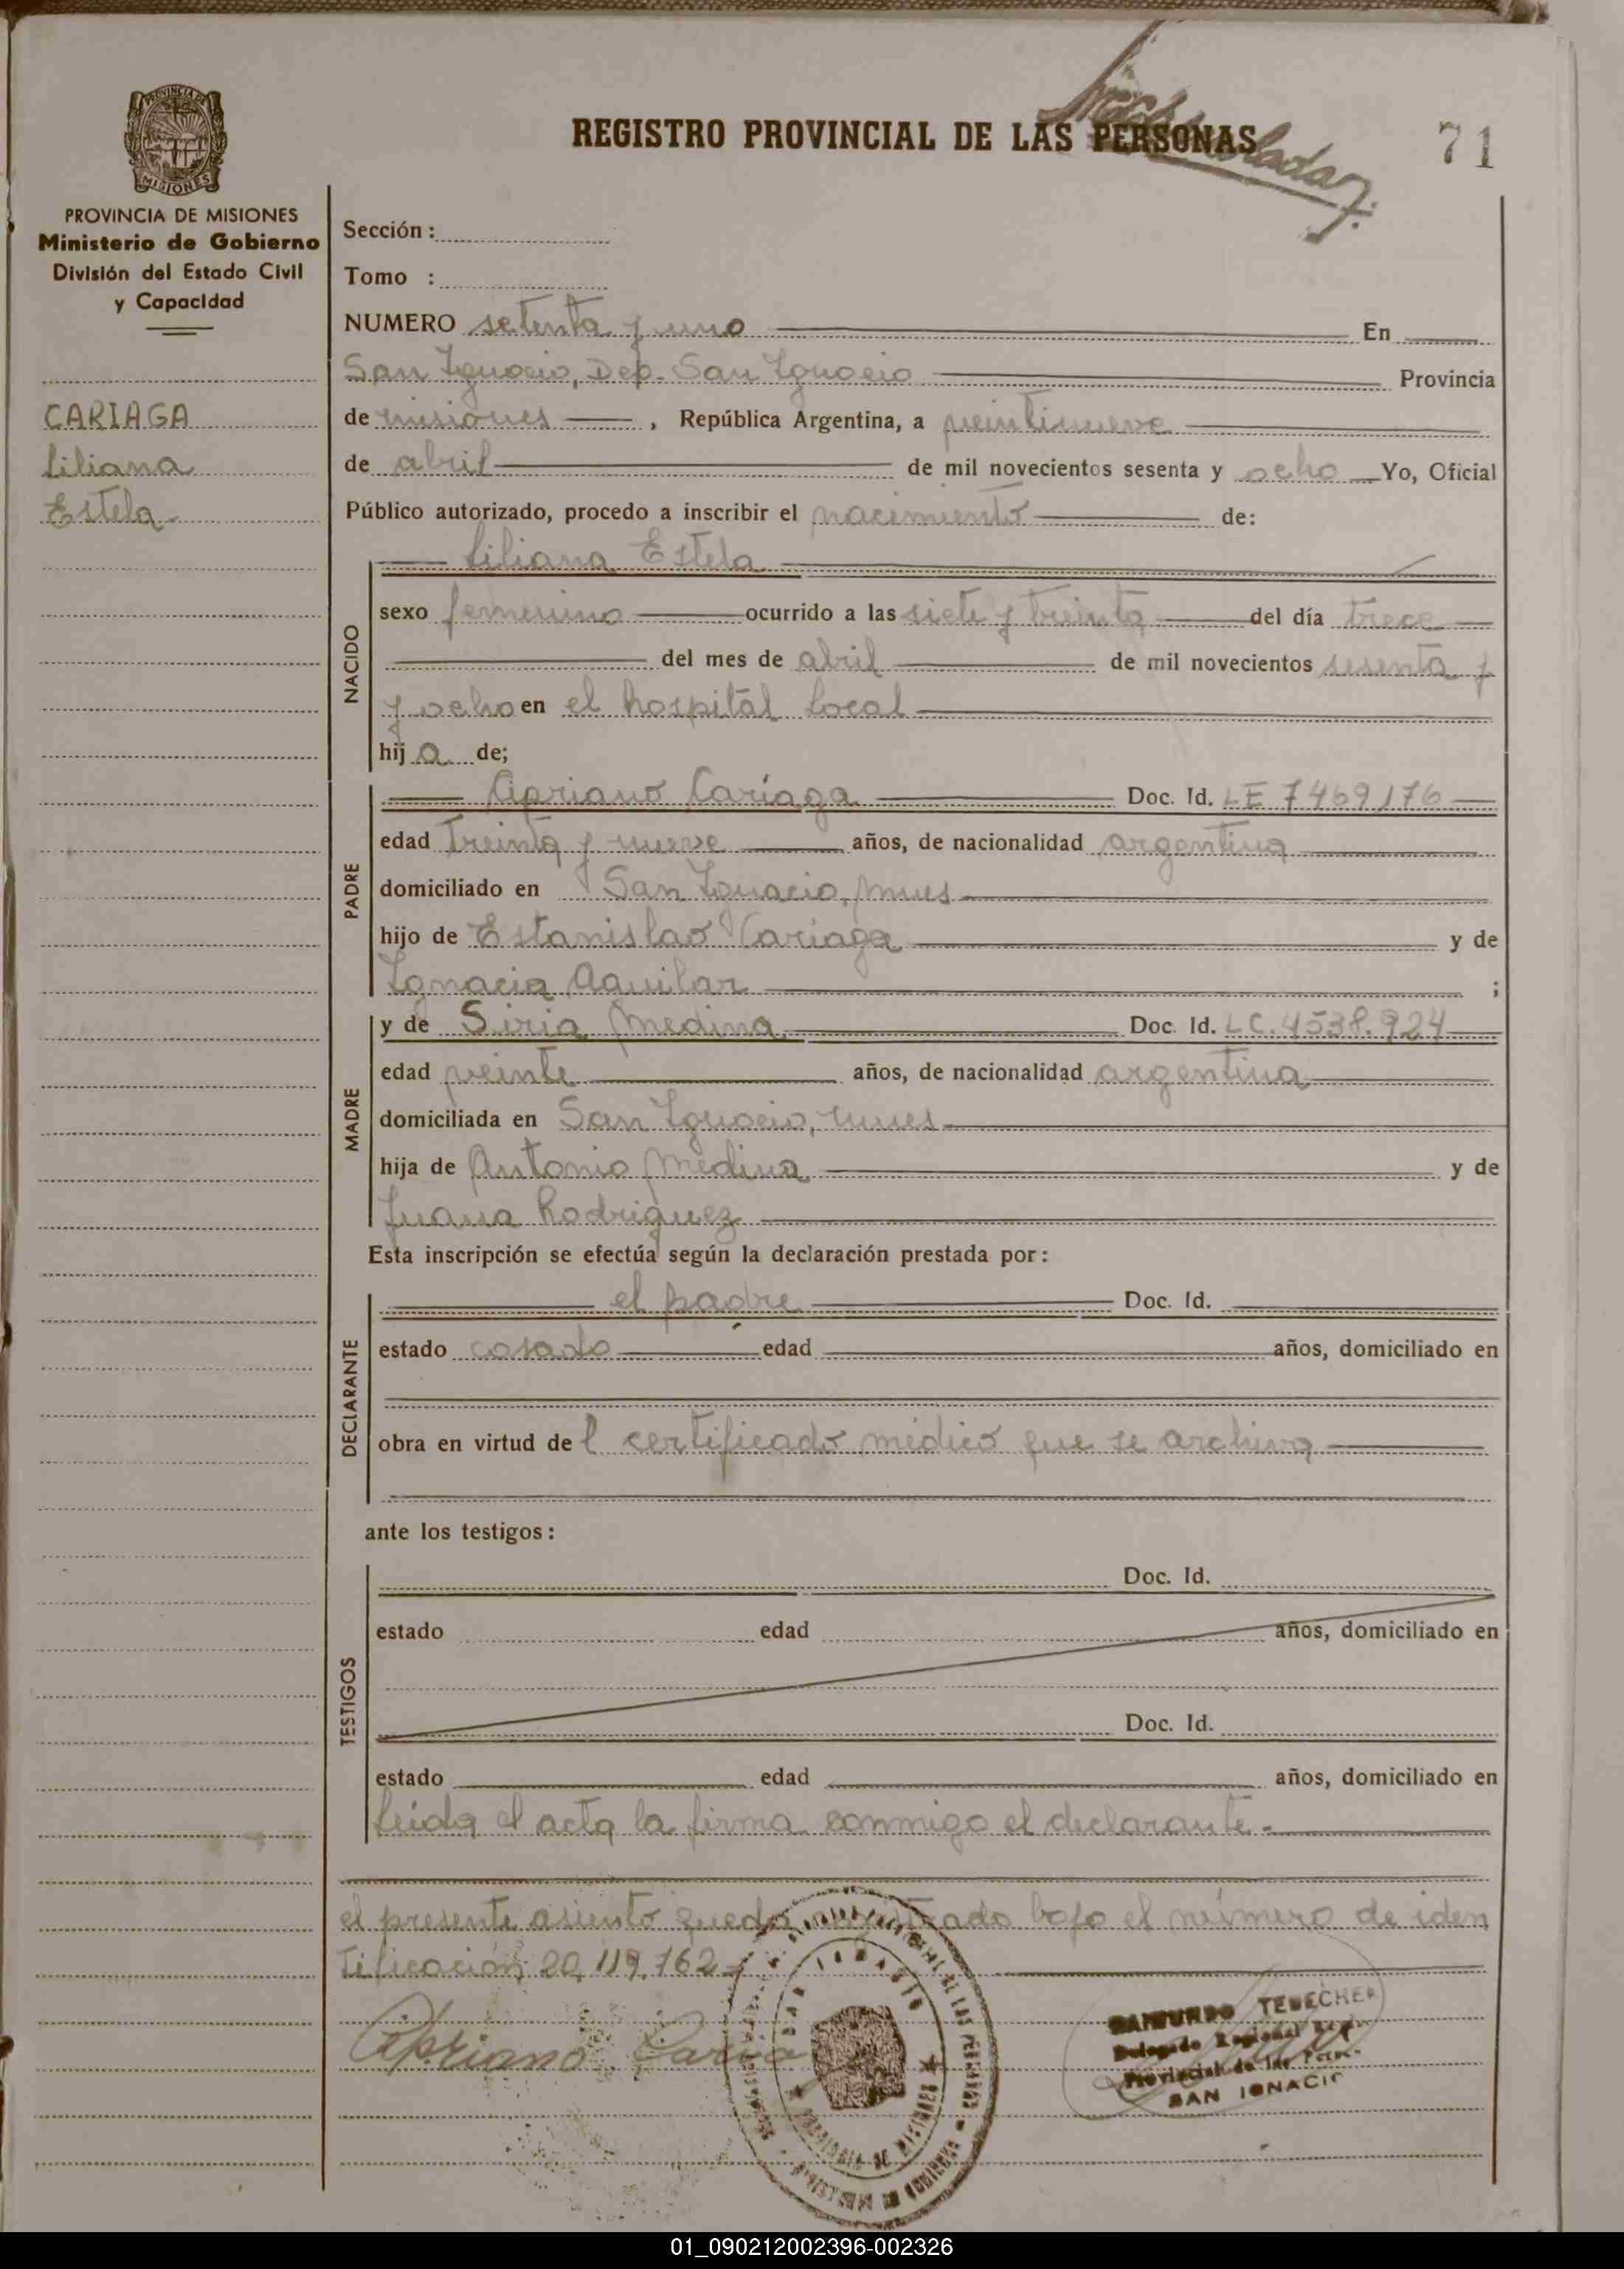 REGISTRO PROVINCIAL DE LAS PERSONAS
71
PROVINCIA DE MISIONES
MISIONES
PROVINCIA DE MISIONES
Ministerio de Gobierno
División del Estado Civil
y Capacidad
CARIAGA
Liliana
Estela
Sección :
Tomo :
NUMERO setenta y uno En
San Ignacio, Dep. San Ignacio Provincia
de misiones , República Argentina, a veintinueve
de abril de mil novecientos sesenta y ocho Yo, Oficial
Público autorizado, procedo a inscribir el nacimiento de:
NACIDO
Liliana Estela
sexo femenino ocurrido a las siete y treinta del día trece
del mes de abril de mil novecientos sesenta y
y ocho en el hospital local
hij a de;
PADRE
Cipriano Cariaga Doc. Id. LE 7469176
edad treinta y nueve años, de nacionalidad argentina
domiciliado en San Ignacio, mnes
hijo de Estanislao Cariaga y de
Ignacia Aguilar ;
MADRE
y de Siria Medina Doc. Id. LC. 4538.924
edad veinte años, de nacionalidad argentina
domiciliada en San Ignacio, mnes
hija de Antonio Medina y de
Juana Rodriguez
Esta inscripción se efectúa según la declaración prestada por :
DECLARANTE
el padre Doc. Id.
estado casado edad años, domiciliado en
obra en virtud de l certificado médico que se archiva
ante los testigos :
TESTIGOS
Doc. Id.
estado edad años, domiciliado en
Doc. Id.
estado edad años, domiciliado en
Leida el acta la firma conmigo el declarante.
el presente asiento queda registrado bajo el número de iden
tificación 20.119.162
Cipriano Caria
RAIMUNDO TEDECHER
Delegado Regional
Provincial de las Pers.
SAN IGNACIO
01_090212002396-002326